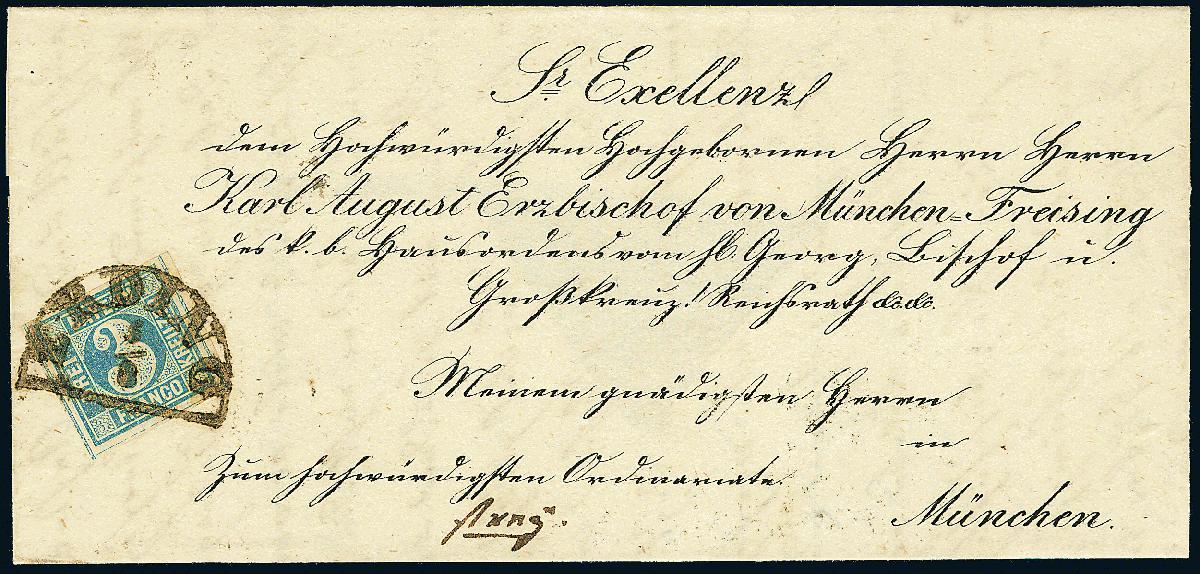 Sr. Exellenz
dem Hochwürdigsten Hochgebornen Herrn Herrn
Karl August Erzbischof von München=Freising
des k. b. Hausordens vom hl. Georg, Bischof u.
Großkreuz! Reichsrath &c &c.
Meinem gnädigsten Herrn
in
Zum hochwürdigsten Ordinariate.
München.
ERDING
FRANCO
3
KREUZER